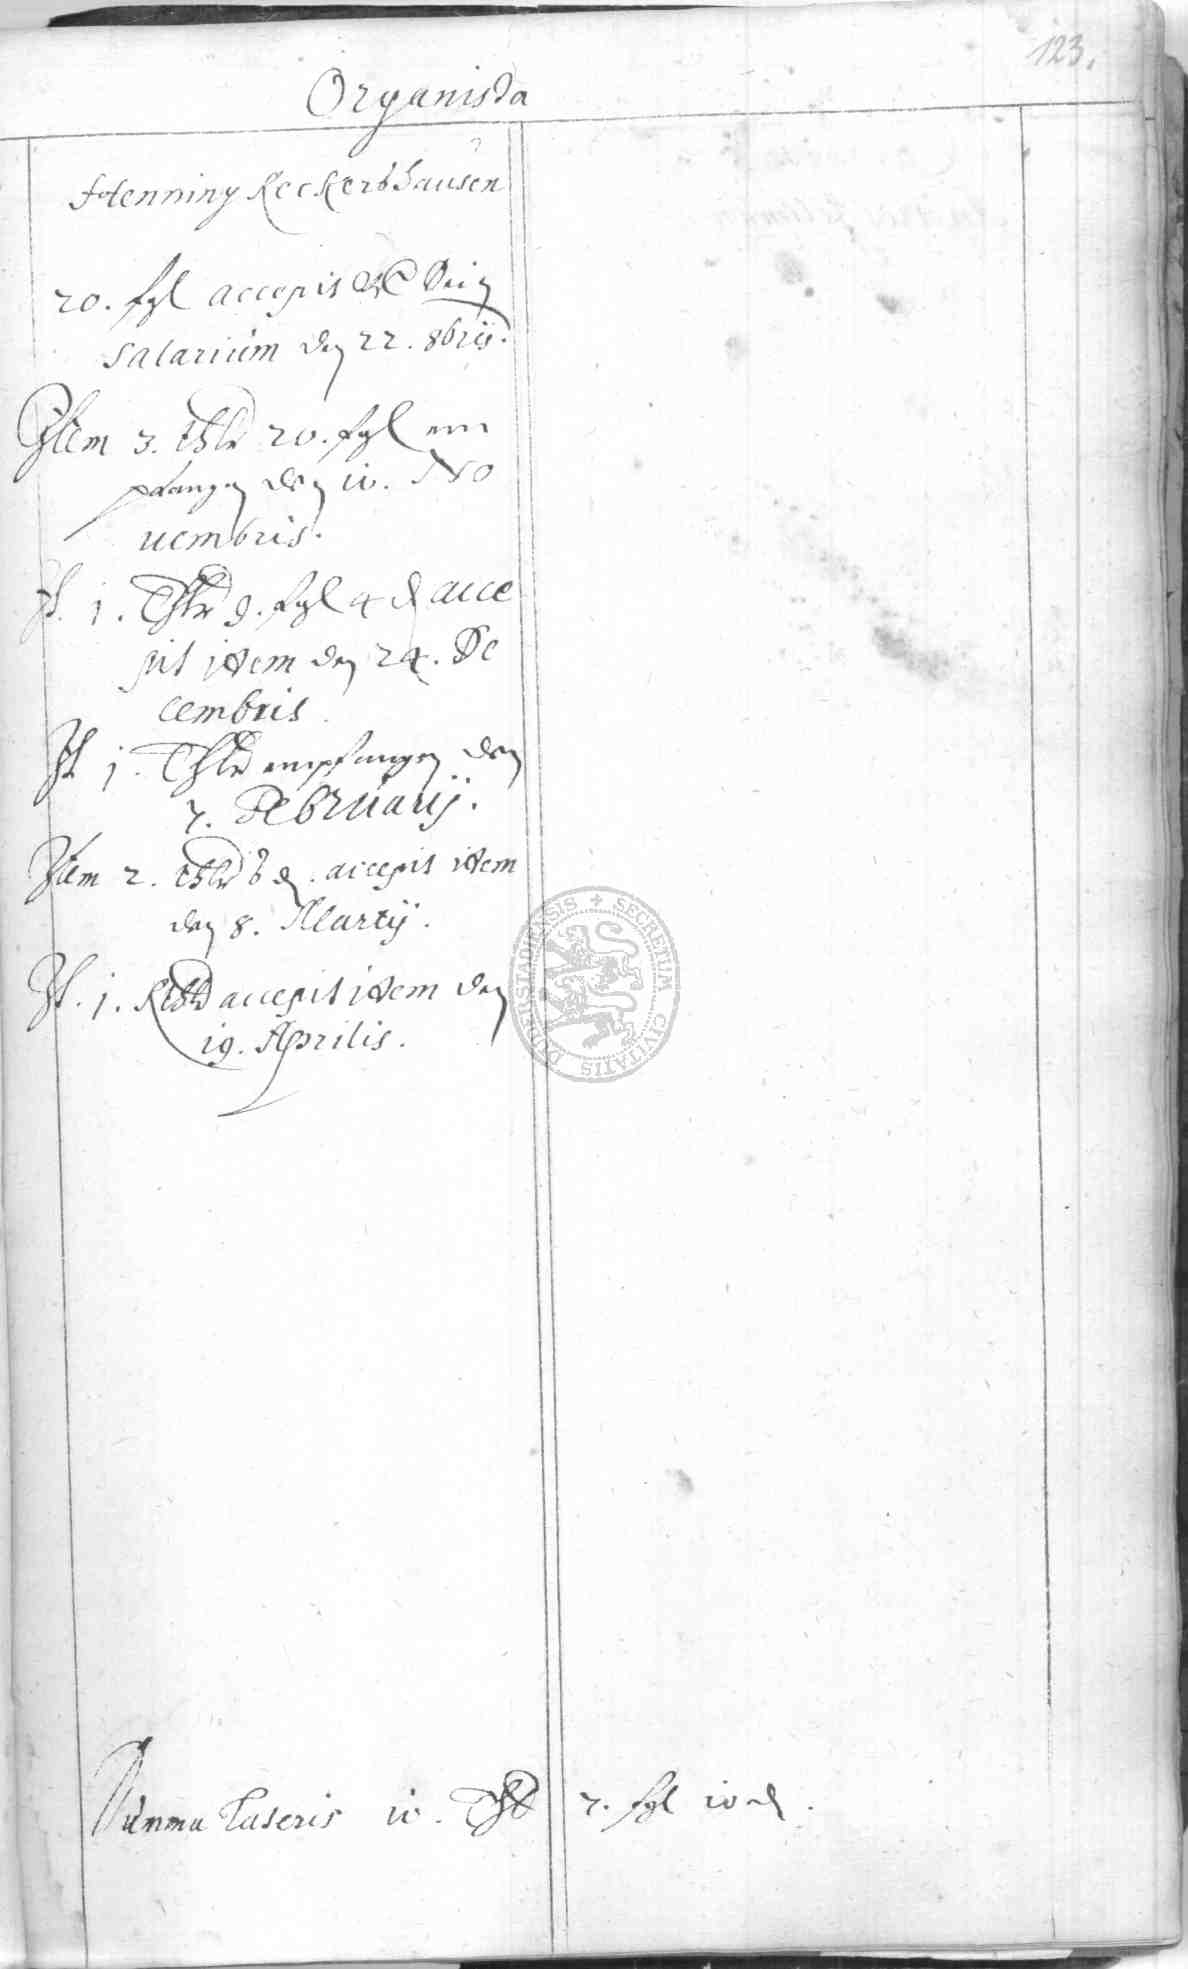 123.
Organista
Henning Reckershausen
20. fgl accepit
salarium den 22. 8bris.
Item 3. thlr 20. fgl em
pfangen den 10. No
uembris.
It. 1. Thlr 9. fgl 4 d acce
pit item den 24. De
cembris
It 1. Thlr empfangen den
7. Februarij.
Item 2. thlr d. accepit item
den 8. Martij.
It. 1. Rthlr accepit item den
19. Aprilis.
SECRETUM CIVITATIS DUDERSTADIENSIS
Summa Lateris 10. Thlr 7. fgl 10 d.